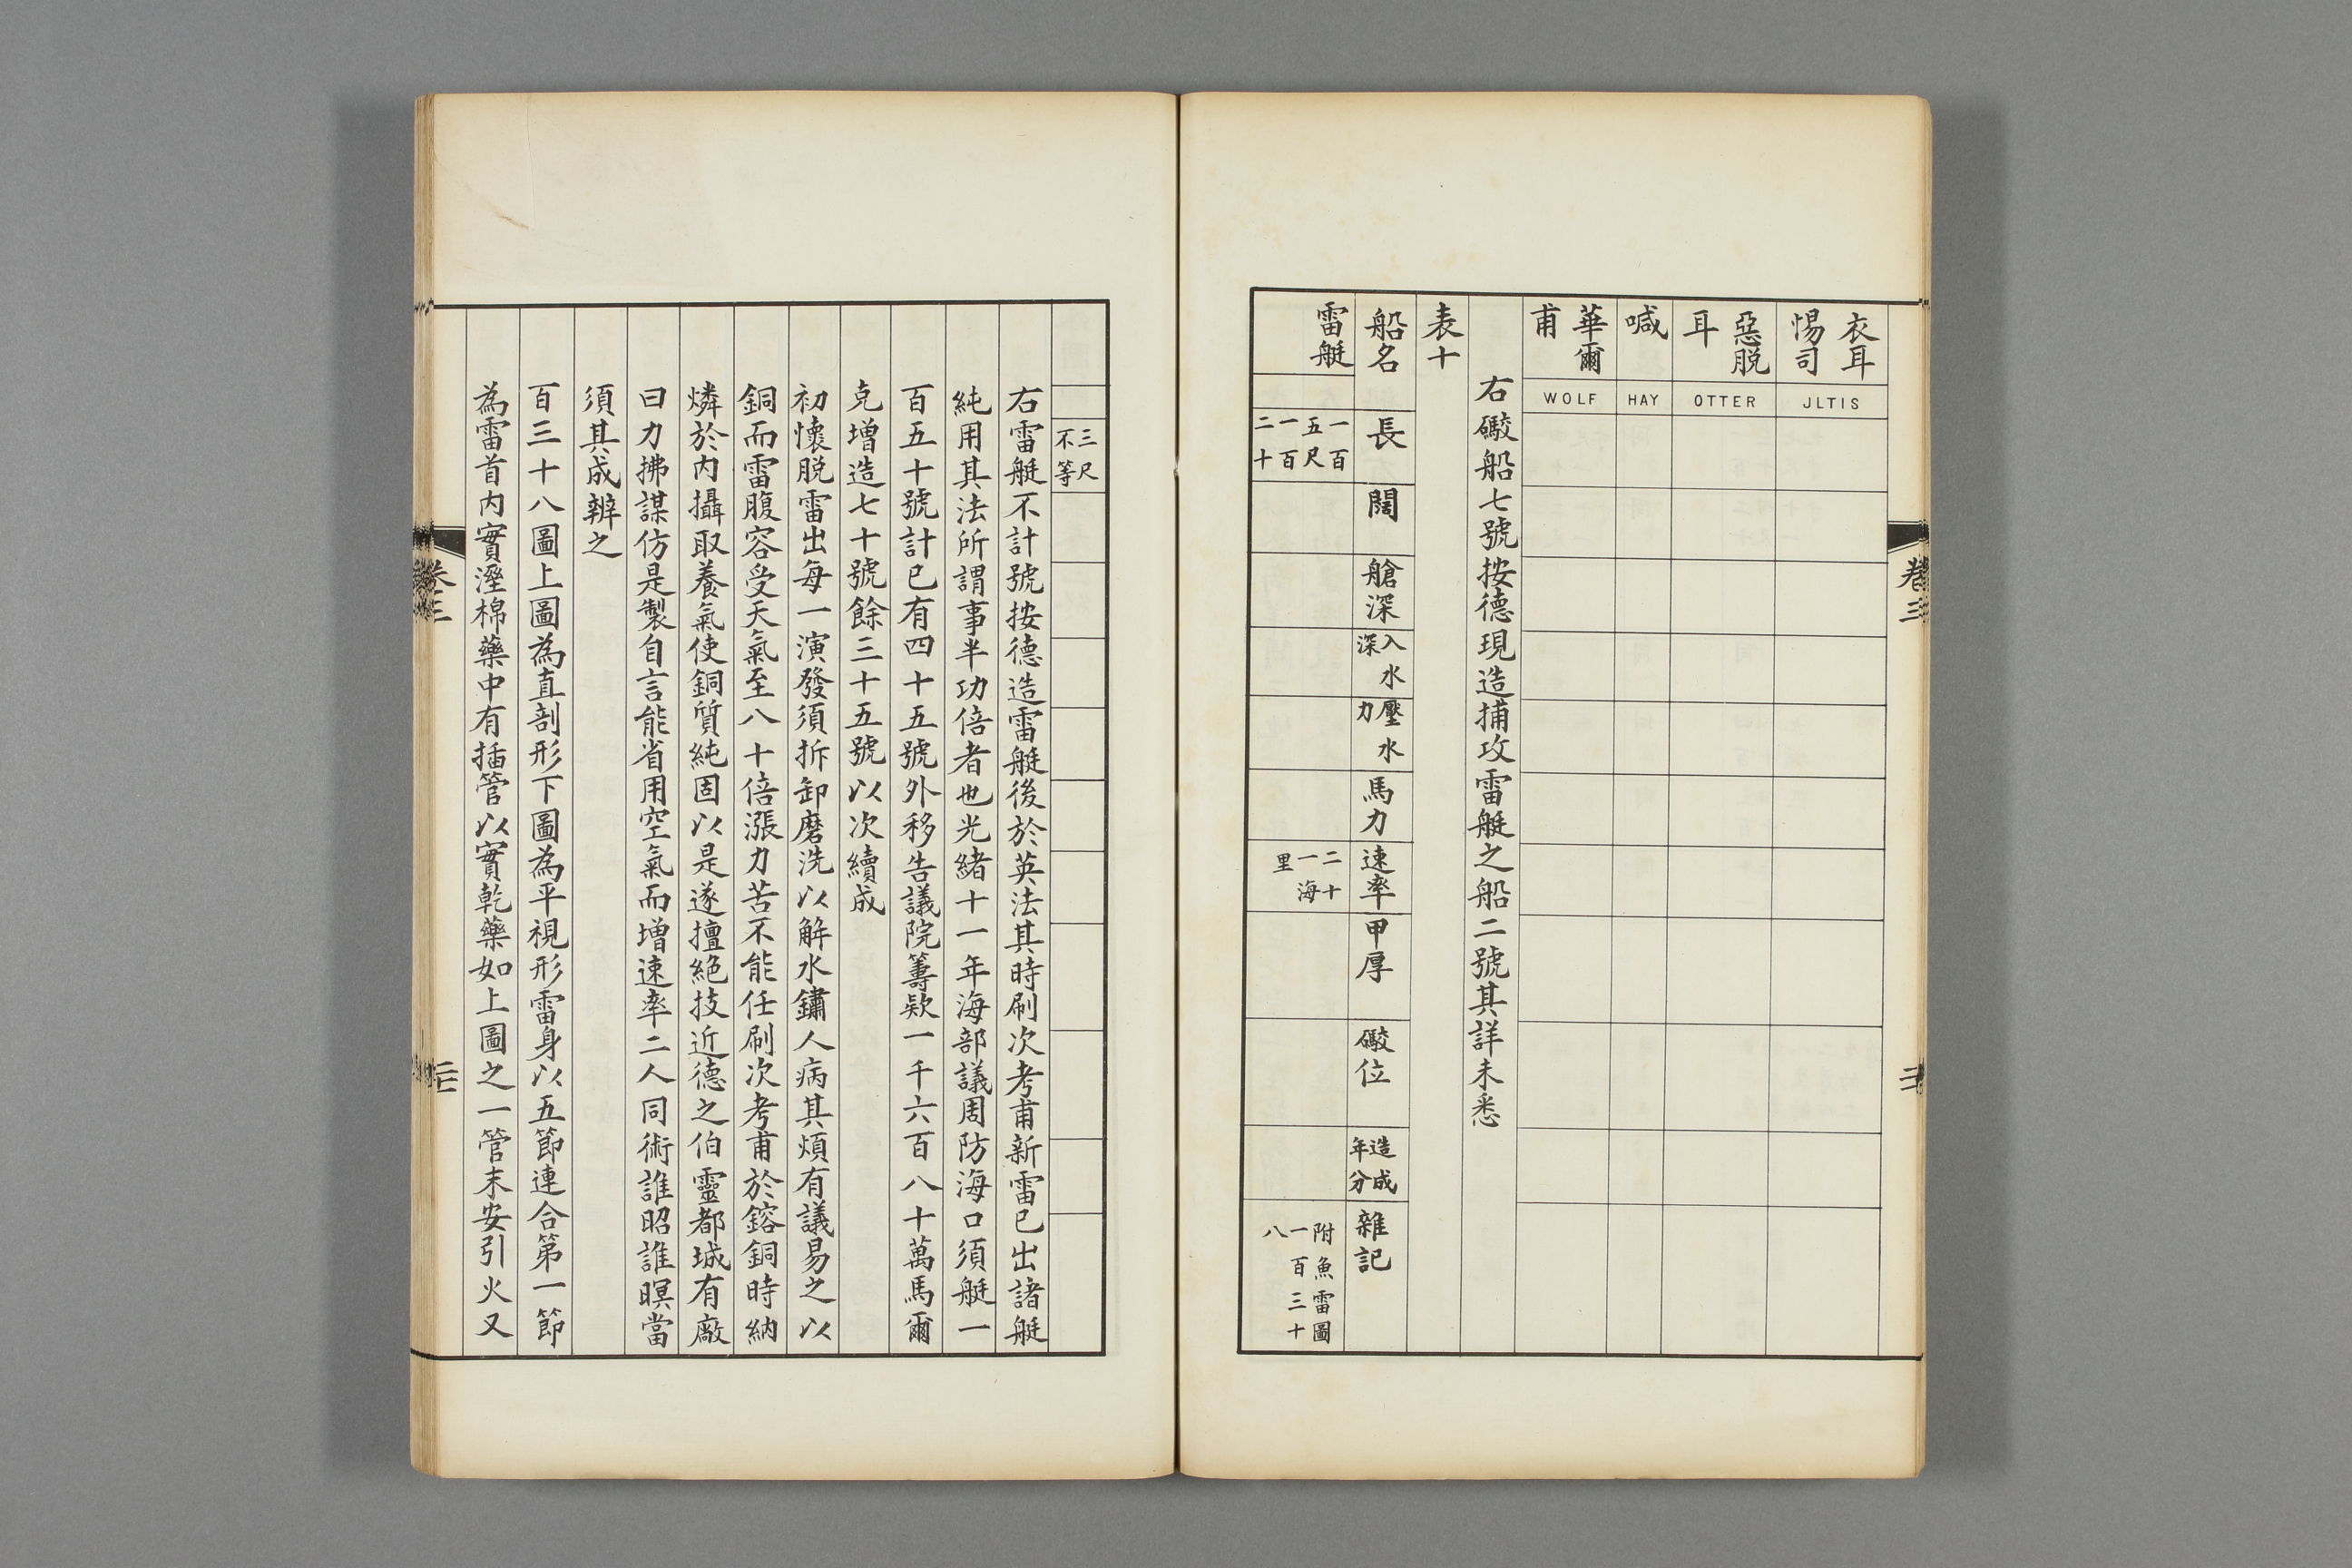 卷三
衣耳
惕司
JLTIS
惡脱
耳
OTTER
喊
HAY
華爾
甫
WOLF
右礮船七號按德現造捕攻雷艇之船二號其詳未悉
表十
船名
長
闊
艙深
入水
深
壓水
力
馬力
速率
甲厚
礮位
造成
年分
雜記
雷艇
一百
五尺
一百
二十
二十
一海
里
附魚雷圖
一百三十
八
三尺
不等
右雷艇不計號按德造雷艇後於英法其時刷次考甫新雷已出諸艇
純用其法所謂事半功倍者也光緒十一年海部議周防海口須艇一
百五十號計已有四十五號外移告議院籌欵一千六百八十萬馬爾
克增造七十號餘三十五號以次續成
初懷脱雷出每一演發須拆卸磨洗以解水鏽人病其煩有議易之以
銅而雷腹容受天氣至八十倍漲力苦不能任刷次考甫於鎔銅時納
燐於内攝取養氣使銅質純固以是遂擅絶技近德之伯靈都城有廠
曰力拂謀仿是製自言能省用空氣而增速率二人同術誰昭誰暝當
須其成辨之
百三十八圖上圖為直剖形下圖為平視形雷身以五節連合第一節
為雷首内實溼棉藥中有插管以實乾藥如上圖之一管末安引火又
卷三